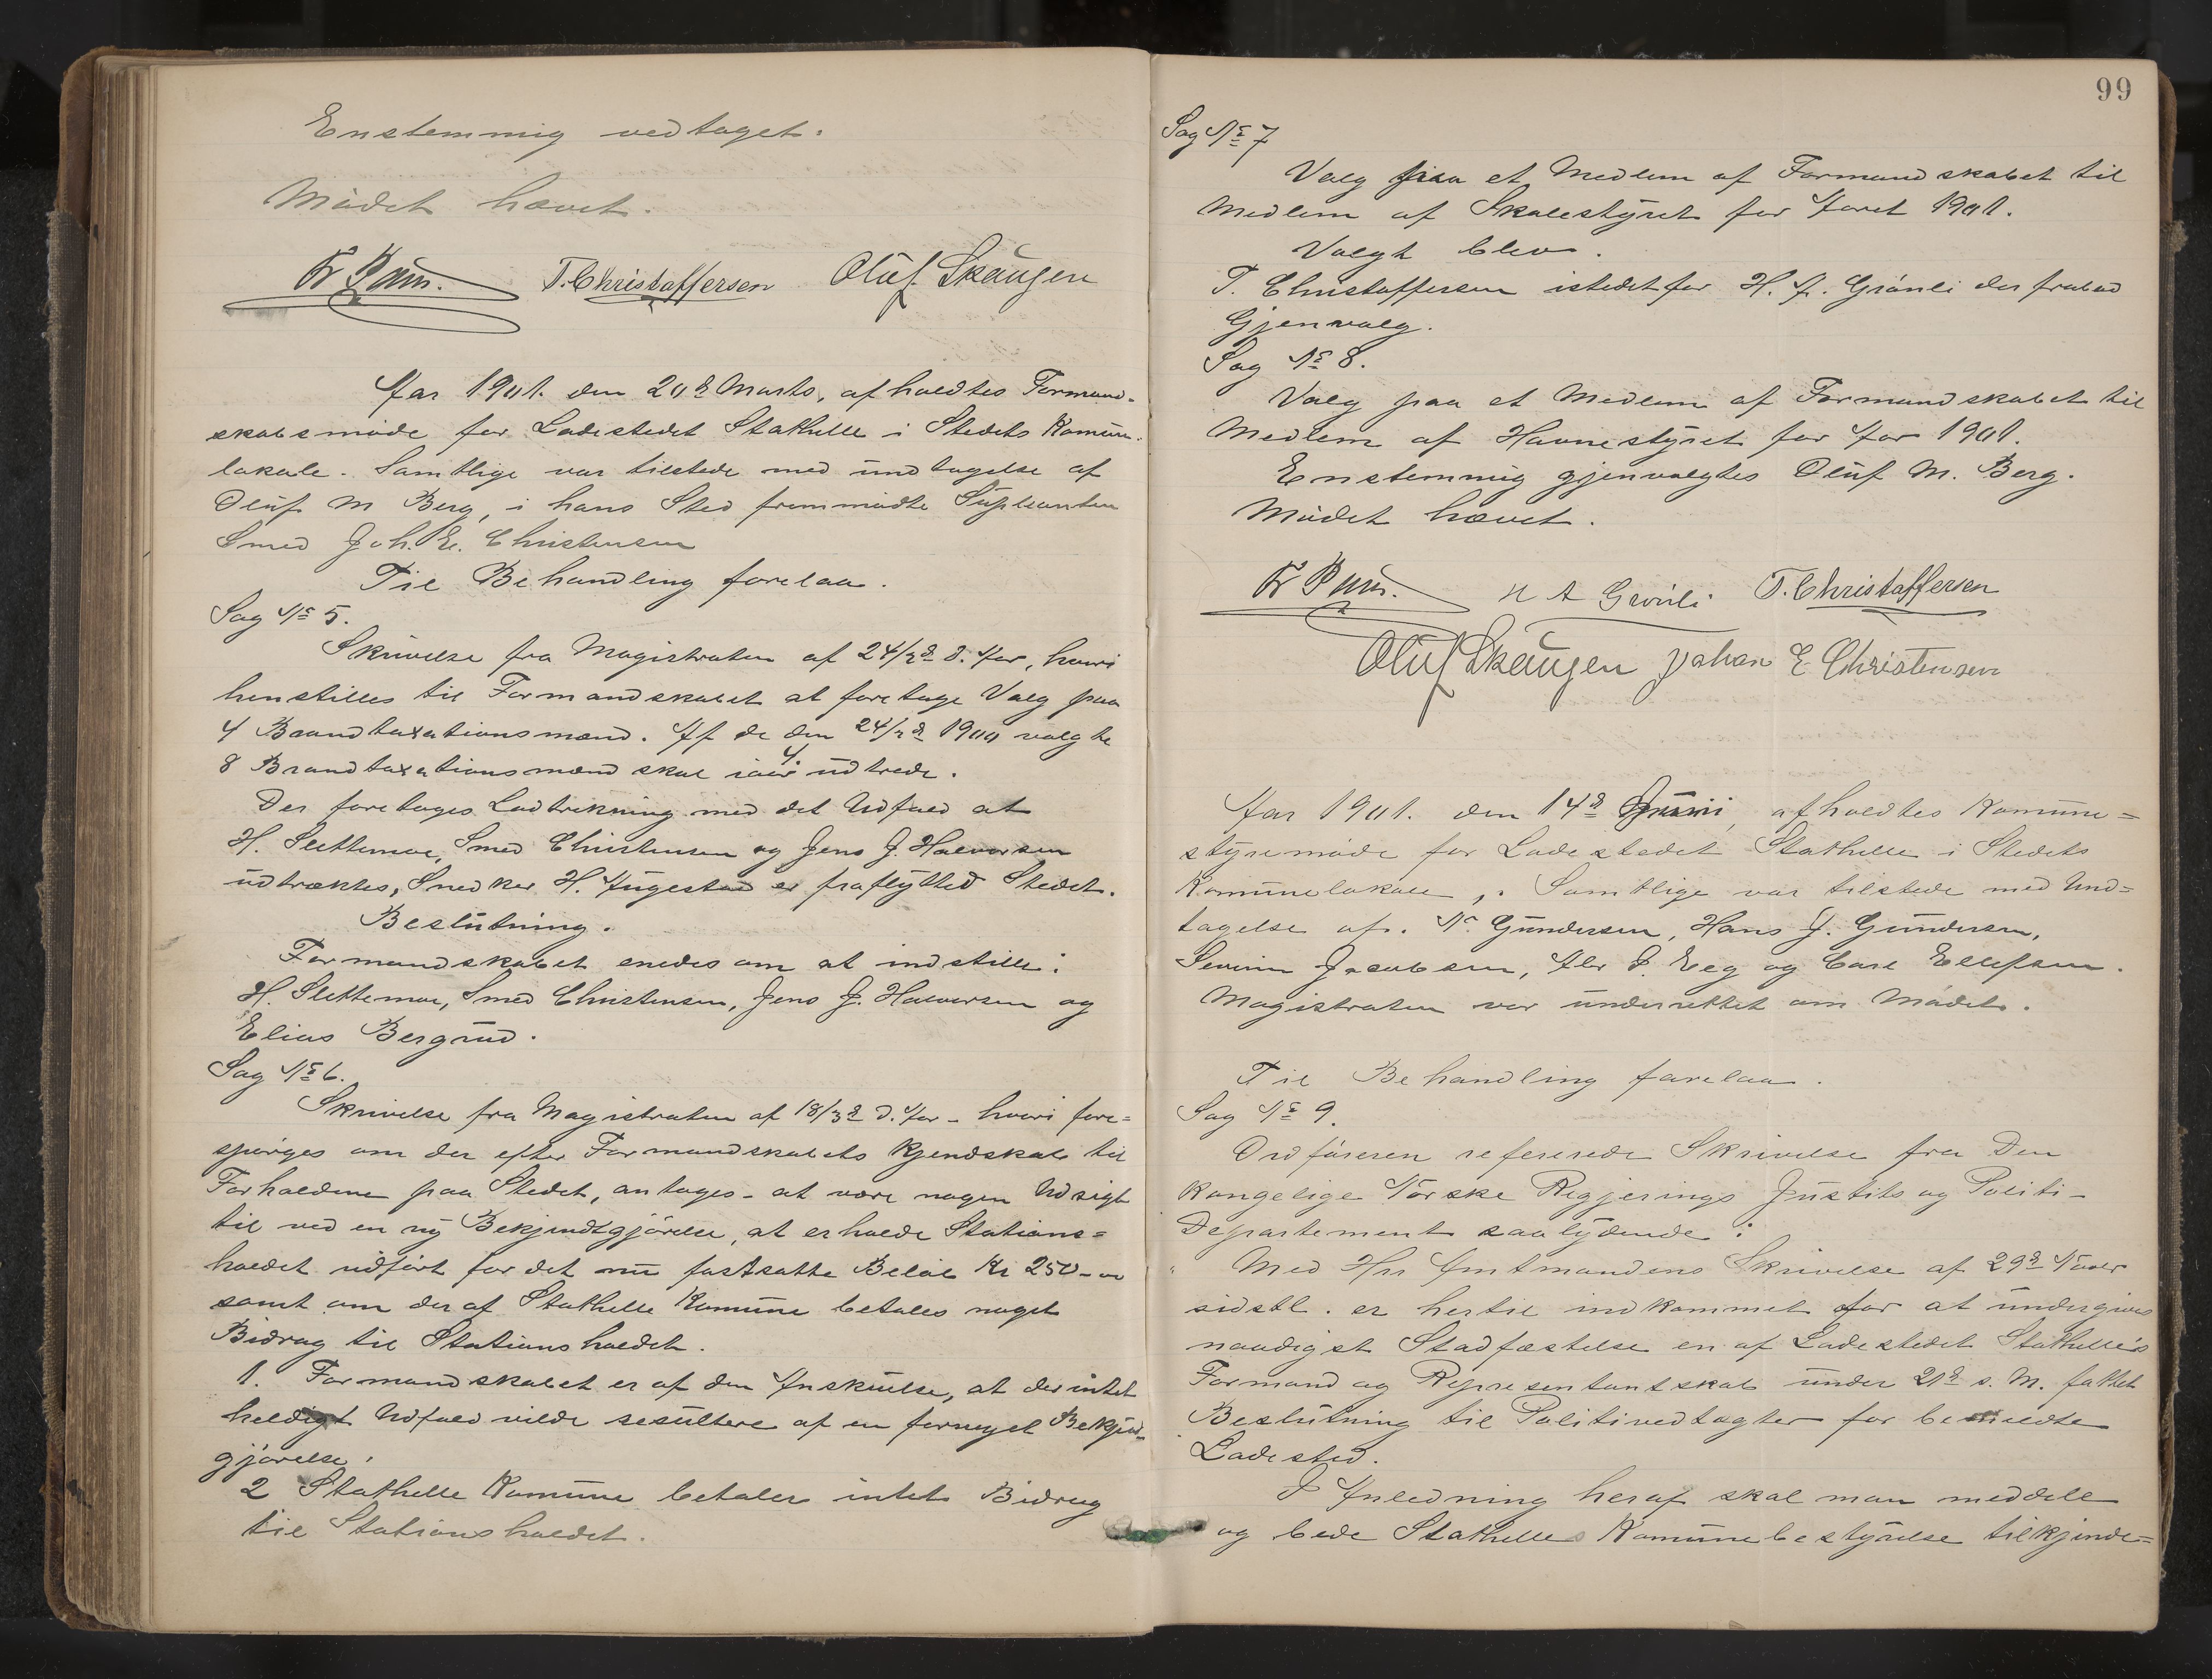 Enstemmig vedtaget.
Mödet hævet.
T. Christoffersen Oluf. Skaugen
Aar 1901. den 20de Marts, afholdtes Formand-
skabsmöde for Ladestedet Stathelle i Stedets Komune-
lokale. Samtlige var tilstede med undtagelse af
Oluf M Berg, i hans Sted fremmödte Supleanten
Smed Joh. E. Christensen
Til Behandling forelaa.
Sag No 5.
Skrivelse fra Magistraten af 24/2de d. Aar, hvori
henstilles til Formandskabet at foretage Valg paa
4 Brandtaxationsmænd. Af de den 24/2de 1900 valgte
8 Brandtaxationsmænd skal iaar 4. udtræde.
Der foretoges Lodtrekning med det Udfald at
H. Slettemoe, Smed Christensen og Jens J. Halvorsen
udtraktes, Snedker H. Augestad er fraflytted Stedet.
Beslutning.
Formandskabet enedes om at indstille:
H. Slettemoe, Smed Christensen, Jens J. Halvorsen og
Elias Bergrud.
Sag No 6.
Skrivelse fra Magistraten af 18/3de d. Aar - hvori fore=
spörges om der efter Formandskabets Kjendskab til
Forholdene paa Stedet, antages - at være nogen Udsigt
til ved en ny Bekjendtgjörelse, at erholde Stations=
holdet udfört for det nu fastsatte Belöb Kr 250-00
samt om der af Stathelle Komune betales noget
Bidrag til Stationsholdet.
1. Formandskabet er af den Anskuelse, at der intet
heldigt Udfald vilde resultere af en fornyet Bekjend-
gjörelse.
2 Stathelle Komune betaler intet Bidrag
til Stationsholdet.
99
Sag No 7
Valg paa et Medlem af Formandskabet til
Medlem af Skolestyret for Aaret 1901.
Valgt blev.
T. Christoffersen istedetfor H. A. Grönli der frabad
Gjenvalg.
Sag No 8.
Valg paa et Medlem af Formandskabet til
Medlem af Havnestyret for Aar 1901.
Enstemmig gjenvalgtes Oluf M. Berg.
Mödet hævet.
H A Grönli T. Christoffersen
Oluf Skaugen Johan E Christensen
Aar 1901. den 14de Juni, afholdtes Komune=
styremöde for Ladestedet Stathelle i Stedets
Komunelokale,. Samtlige var tilstede med Und=
tagelse af. N. Gundersen, Hans J. Gundersen,
Severin Jacobsen, Alb P. Eeg og Carl Ellefsen.
Magistraten var underrettet om Mödet.
Til Behandling forelaa.
Sag No 9.
Ordföreren refererede Skrivelse fra Den
Kongelige Norske Regjerings Justits og Politi-
Departement saalydende:
" Med Hrr Amtmandens Skrivelse af 29de Novbr
sidstl. er hertil indkommet for at undergives
naadigst Stadfæstelse en af Ladestedet Stathelle's
Formand og Representantskab under 21de s. M. fattet
Beslutning til Politivedtægter for bemeldte
Ladested.
I Anledning heraf skal man meddele
og bede Stathelles Komunebestyrelse tilkjende=